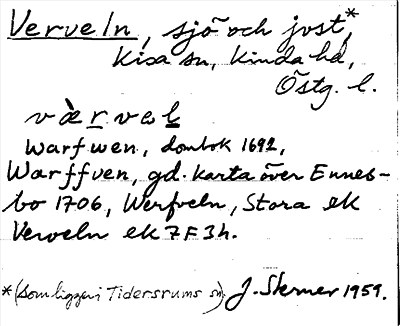 Verveln, sjö och jvst,*
Kisa sn, Kinda hd,
Östg. l.
væ̀rvel
Warfwen, dombok 1692,
Warffven, gd. karta över Ennes-
bo 1706, Werfveln, Stora ek
Verveln ek 7F3h.
*(Som ligger i Tidersrums sn) J. Skerner 1959.